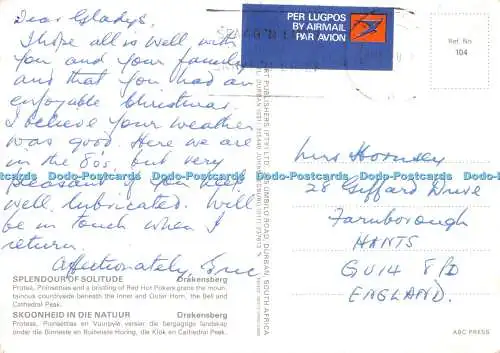 Dear Gladys.
I hope all is well with
you and your family
and that you had an
enjoyable Christmas.
I believe your weather
was good. Here we are
in the 80's. but very
pleasant if you keep
well lubricated. Will
be in touch when I
return.
Affectionately, Eric
SPLENDOUR OF SOLITUDE Drakensberg
Proteas, Poinsettias and a bristling of Red Hot Pokers grace the moun-
tainous countryside beneath the Inner and Outer Horn, the Bell and
Cathedral Peak.
SKOONHEID IN DIE NATUUR Drakensberg
Proteas, Poinsettias en Vuurpyle versier die bergagtige landskap
onder die Binneste en Buitenste Horing, die Klok en Cathedral Peak.
PER LUGPOS
BY AIRMAIL
PAR AVION
Ref. No
104
Mrs Hornsey
28 Giffard Drive
Farnborough
HANTS
GU14 8PD
ENGLAND.
ABC PRESS
Dodo-Postcards Dodo-Postcards Dodo-Postcards Dodo-Postcards Dodo-Postcards